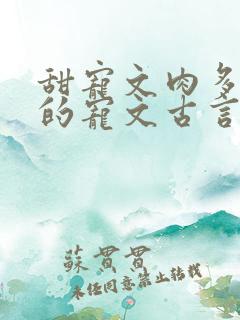 甜寵文肉多
的寵文古言
蘇贯贯
未经同意禁止转载